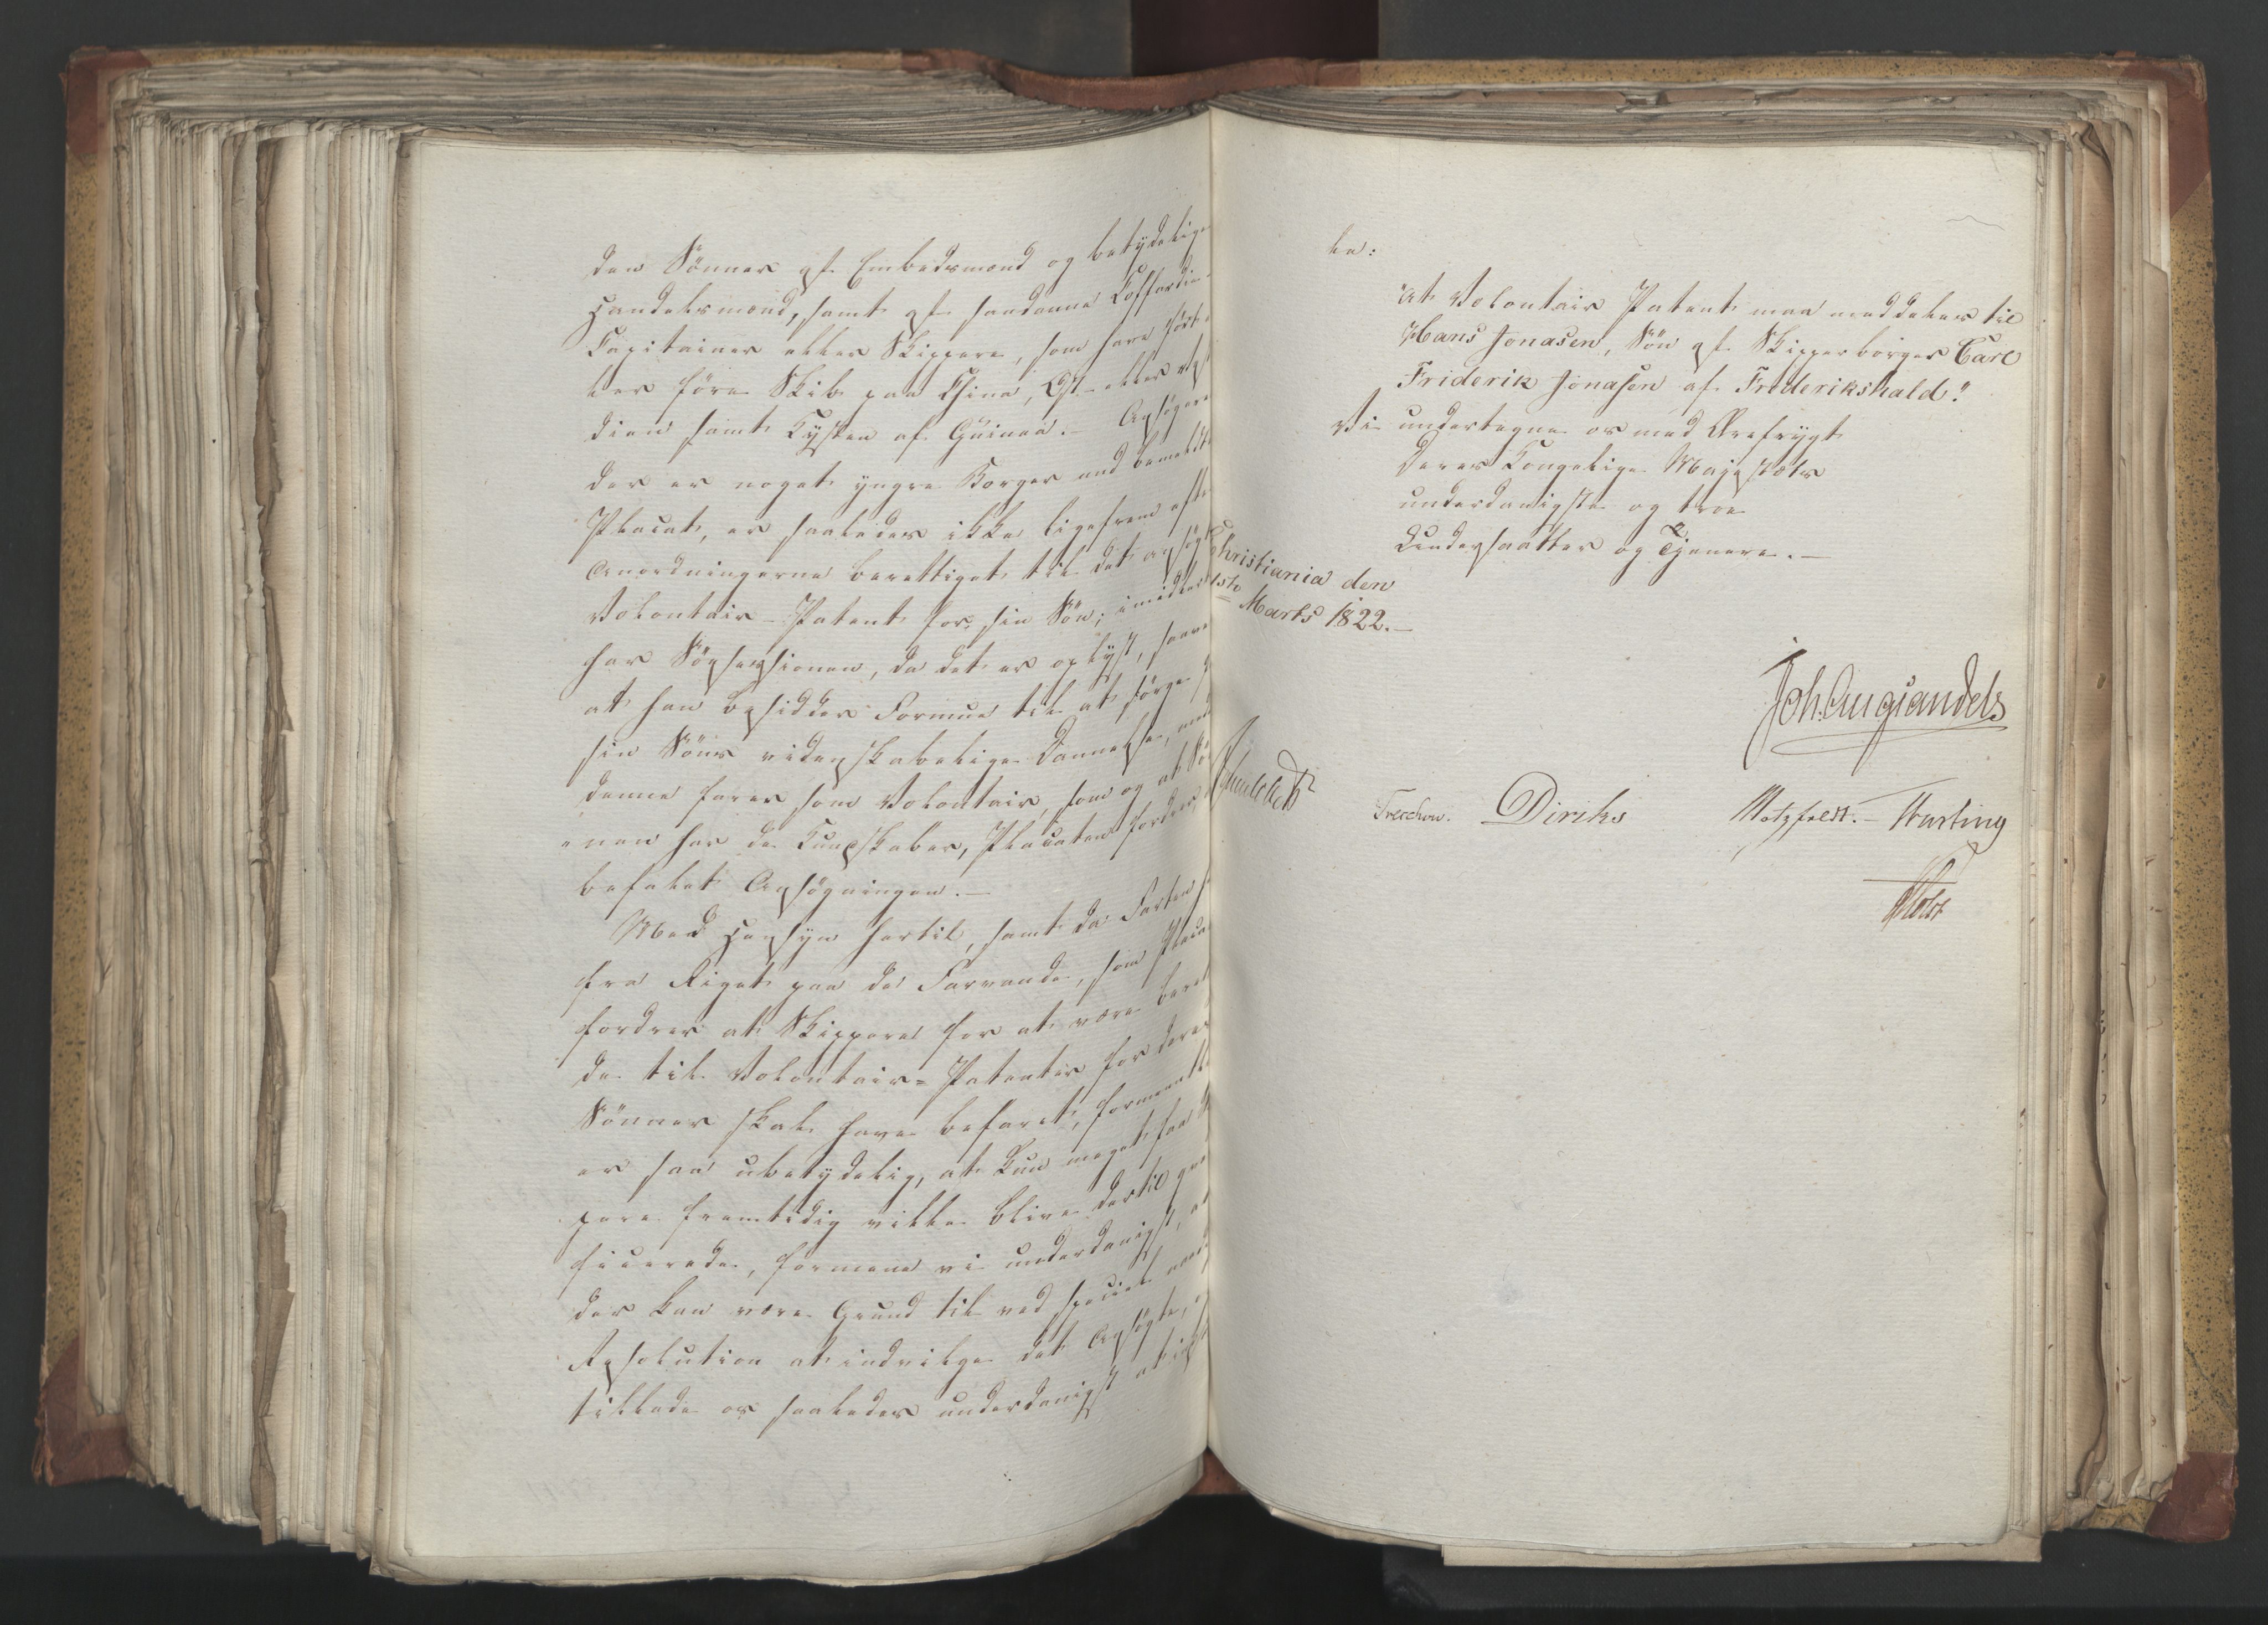 den Sönner af Embedsmænd og betydelige
Handelsmænd, samt af saadanne Coffardie-
Capitainer eller Skippere, som have fört el-
ler före Skib paa China, Ost- eller Vest
dien samt Kysten af Guinea. - Ansögere
der er noget yngre Borger end bemeldte
Placat, er saaledes ikke ligefrem efter
Anordningerne berettiget til det ansögte
Volontair-Patent for sin Sön; imidlertid
har Söesessionen, da det er oplyst, saavel
at han besidder Formue til at sörge for
sin Söns videnskabelige Dannelse, medens
denne farer som Volontair, som og at Sön-
"nen har de Kundskaber, Placaten fordrer,
befalet Ansögningen. -
Med Hensyn hertil, samt da Farten
fra Riget paa de Farvande, som Placaten
fordrer at Skippere for at være berettige-
de til Volontair-Patenter for deres
Sönner skal have befaret, formeentlig
er saa ubetydelig, at kun meget faa Skip-
pere fremtidig ville blive dertil quali-
ficerede, formene vi underdanigst, at
der kan være Grund til ved speciel naadigst
Resolution at indvilge det Ansögte, og
tillade os saaledes underdanigst at indstil-
le:
"At Volontair Patent maa meddeles til
Hans Jonasen, Sön af Skipperborger Carl
Friderik Jonasen af Friderikshald."
Vi undertegne os med Ærefrygt
Deres Kongelige Majestæts
underdanigste og troe
Undersaatter og Tjenere. -
Christiania den
1ste Marts 1822. -
Joh. Aug. Sandels
Treschow. Diriks Motzfeldt. - Krefting
Holst